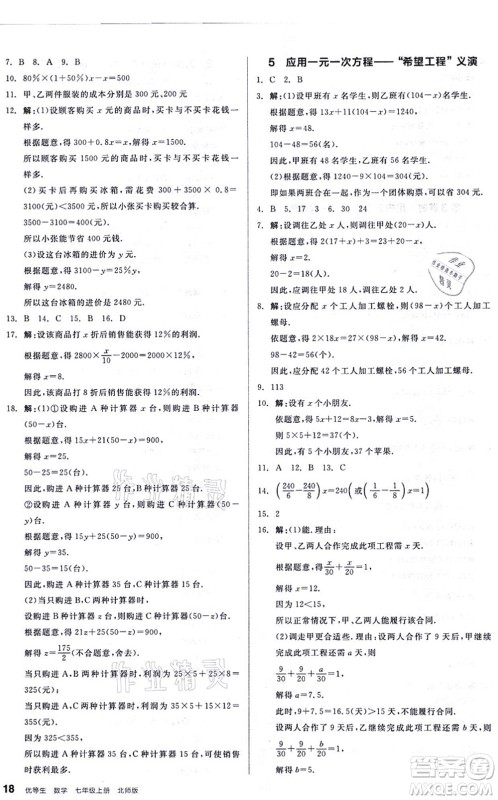 7. B　8. A　9. B
10. 80%×(1+50%)x-x=8　11. 210 元
12. 解:(1)设顾客购买 x 元商品时,买卡与不买卡花钱一
样多.
根据题意,得 300+0.8x=x,解得 x=1500.
所以顾客购买 1500 元商品时,买卡与不买卡花钱一
样多.
(2)买卡后再买冰箱,需花费 300+3500×0.8=
3100(元)<3500(元),所以小张买卡合算.
3500-3100=400(元).
所以小张能节省 400 元.
(3)设这台冰箱的进价为 y 元.
根据题意,得 3100-y=25%y,解得 y=2480.
因此,这台冰箱的进价是 2480 元.
13. B　14. C　15. B　16. D
17. 解:设该商品打 x 折后获得 12%的利润.
根据题意,得 2800×x/10-2000=2000×12%.
解得 x=8.
因此,该商品打 8 折后获得 12%的利润.
18. 解:(1)①设购进 A 种计算器 x 台,则购进 B 种计算器
(50-x)台.
根据题意,得 15x+21(50-x)=900,
解得 x=25.
50-25=25(台).
因此,购进 A 种计算器 25 台,B 种计算器 25 台.
②设购进 A 种计算器 y 台,则购进 C 种计算器
(50-y)台.
根据题意,得 15y+25(50-y)=900,
解得 y=35.
50-35=15(台).
因此,购进 A 种计算器 35 台,C 种计算器 15 台.
(2)当只购进 B,C 两种计算器时,
设购进 B 种计算器 z 台,则购进 C 种计算器(50-z)台.
根据题意,得 21z+25(50-z)=900,
解得 z=175/2(不符合题意,舍去).
当只购进 A,B 两种计算器时,利润为 5×25+8×25=
325(元);
当只购进 A,C 两种计算器时,利润为 5×35+12×15=
355(元).
因为 355>325,
所以为使销售时获利最大,应购进 A 种计算器 35 台,
C 种计算器 15 台.
5　应用一元一次方程——“希望工程”义演
1. C　2. B
3. 解:(1)设(1)班有 x 名学生,则(2)班有(104-x)名学生.
根据题意,得 13x+11×(104-x)=1240,
解得 x=48.
104-48=56(名).
因此,(1)班有 48 名学生,(2)班有 56 名学生.
(2)根据题意,得 1240-9×104=304(元).
即如果两班联合起来,作为一个团体购票,可以省 304 元.
4. B　5. 17　3　6. 30　24
7. 解:设应调往乙处 x 人,则调往甲处(20-x)人.
根据题意,得 2(17+x)+3=23+20-x,
解得 x=2,
20-2=18(人).
因此,应调往甲处 18 人,调往乙处 2 人.
8. 解:设应分配 x 个工人加工螺栓,(98-x)个工人加工
螺母.
依题意,得 2×15x=20×(98-x),
解得 x=42.
98-42=56(个).
因此,应分配 42 个工人加工螺栓,56 个工人加工螺母.
9. 113
10. 解:设有 x 个小朋友.
依题意,得 5x+12=8x-3,解得 x=5.
则 5×5+12=37.
答:有 5 个小朋友,37 个苹果.
11. A　12. B　13. C
14. (240/6-240/8)x=240(或(1/6-1/8)x=1)
15. 2
16. 解:(1)能.理由:
设甲、乙两人合作完成此项工程需 x 天.
根据题意,得 x/30+x/20=1,
解得 x=12.
因为 12<15,
所以甲、乙两人能履行该合同.
18　优等生　数学　七年级上册　北师版
作业精灵
作业精灵